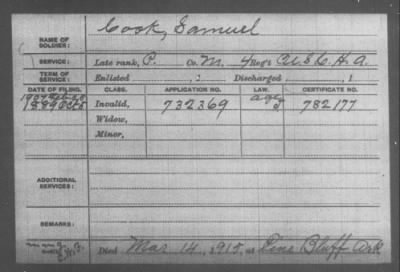 Cook, Samuel
NAME OF
SOLDIER:
SERVICE: Late rank, P. Co. M, 4 Reg't U.S.C.H.A.
TERM OF
SERVICE: Enlisted , 1 Discharged , 1
DATE OF FILING. CLASS. APPLICATION NO. LAW. CERTIFICATE NO.
1907 Feb
1889 Oct 5 Invalid, 732369 age 782177
Widow,
Minor,
ADDITIONAL
SERVICES:
REMARKS:
Died Mar 14, 1915, at Pine Bluff Ark